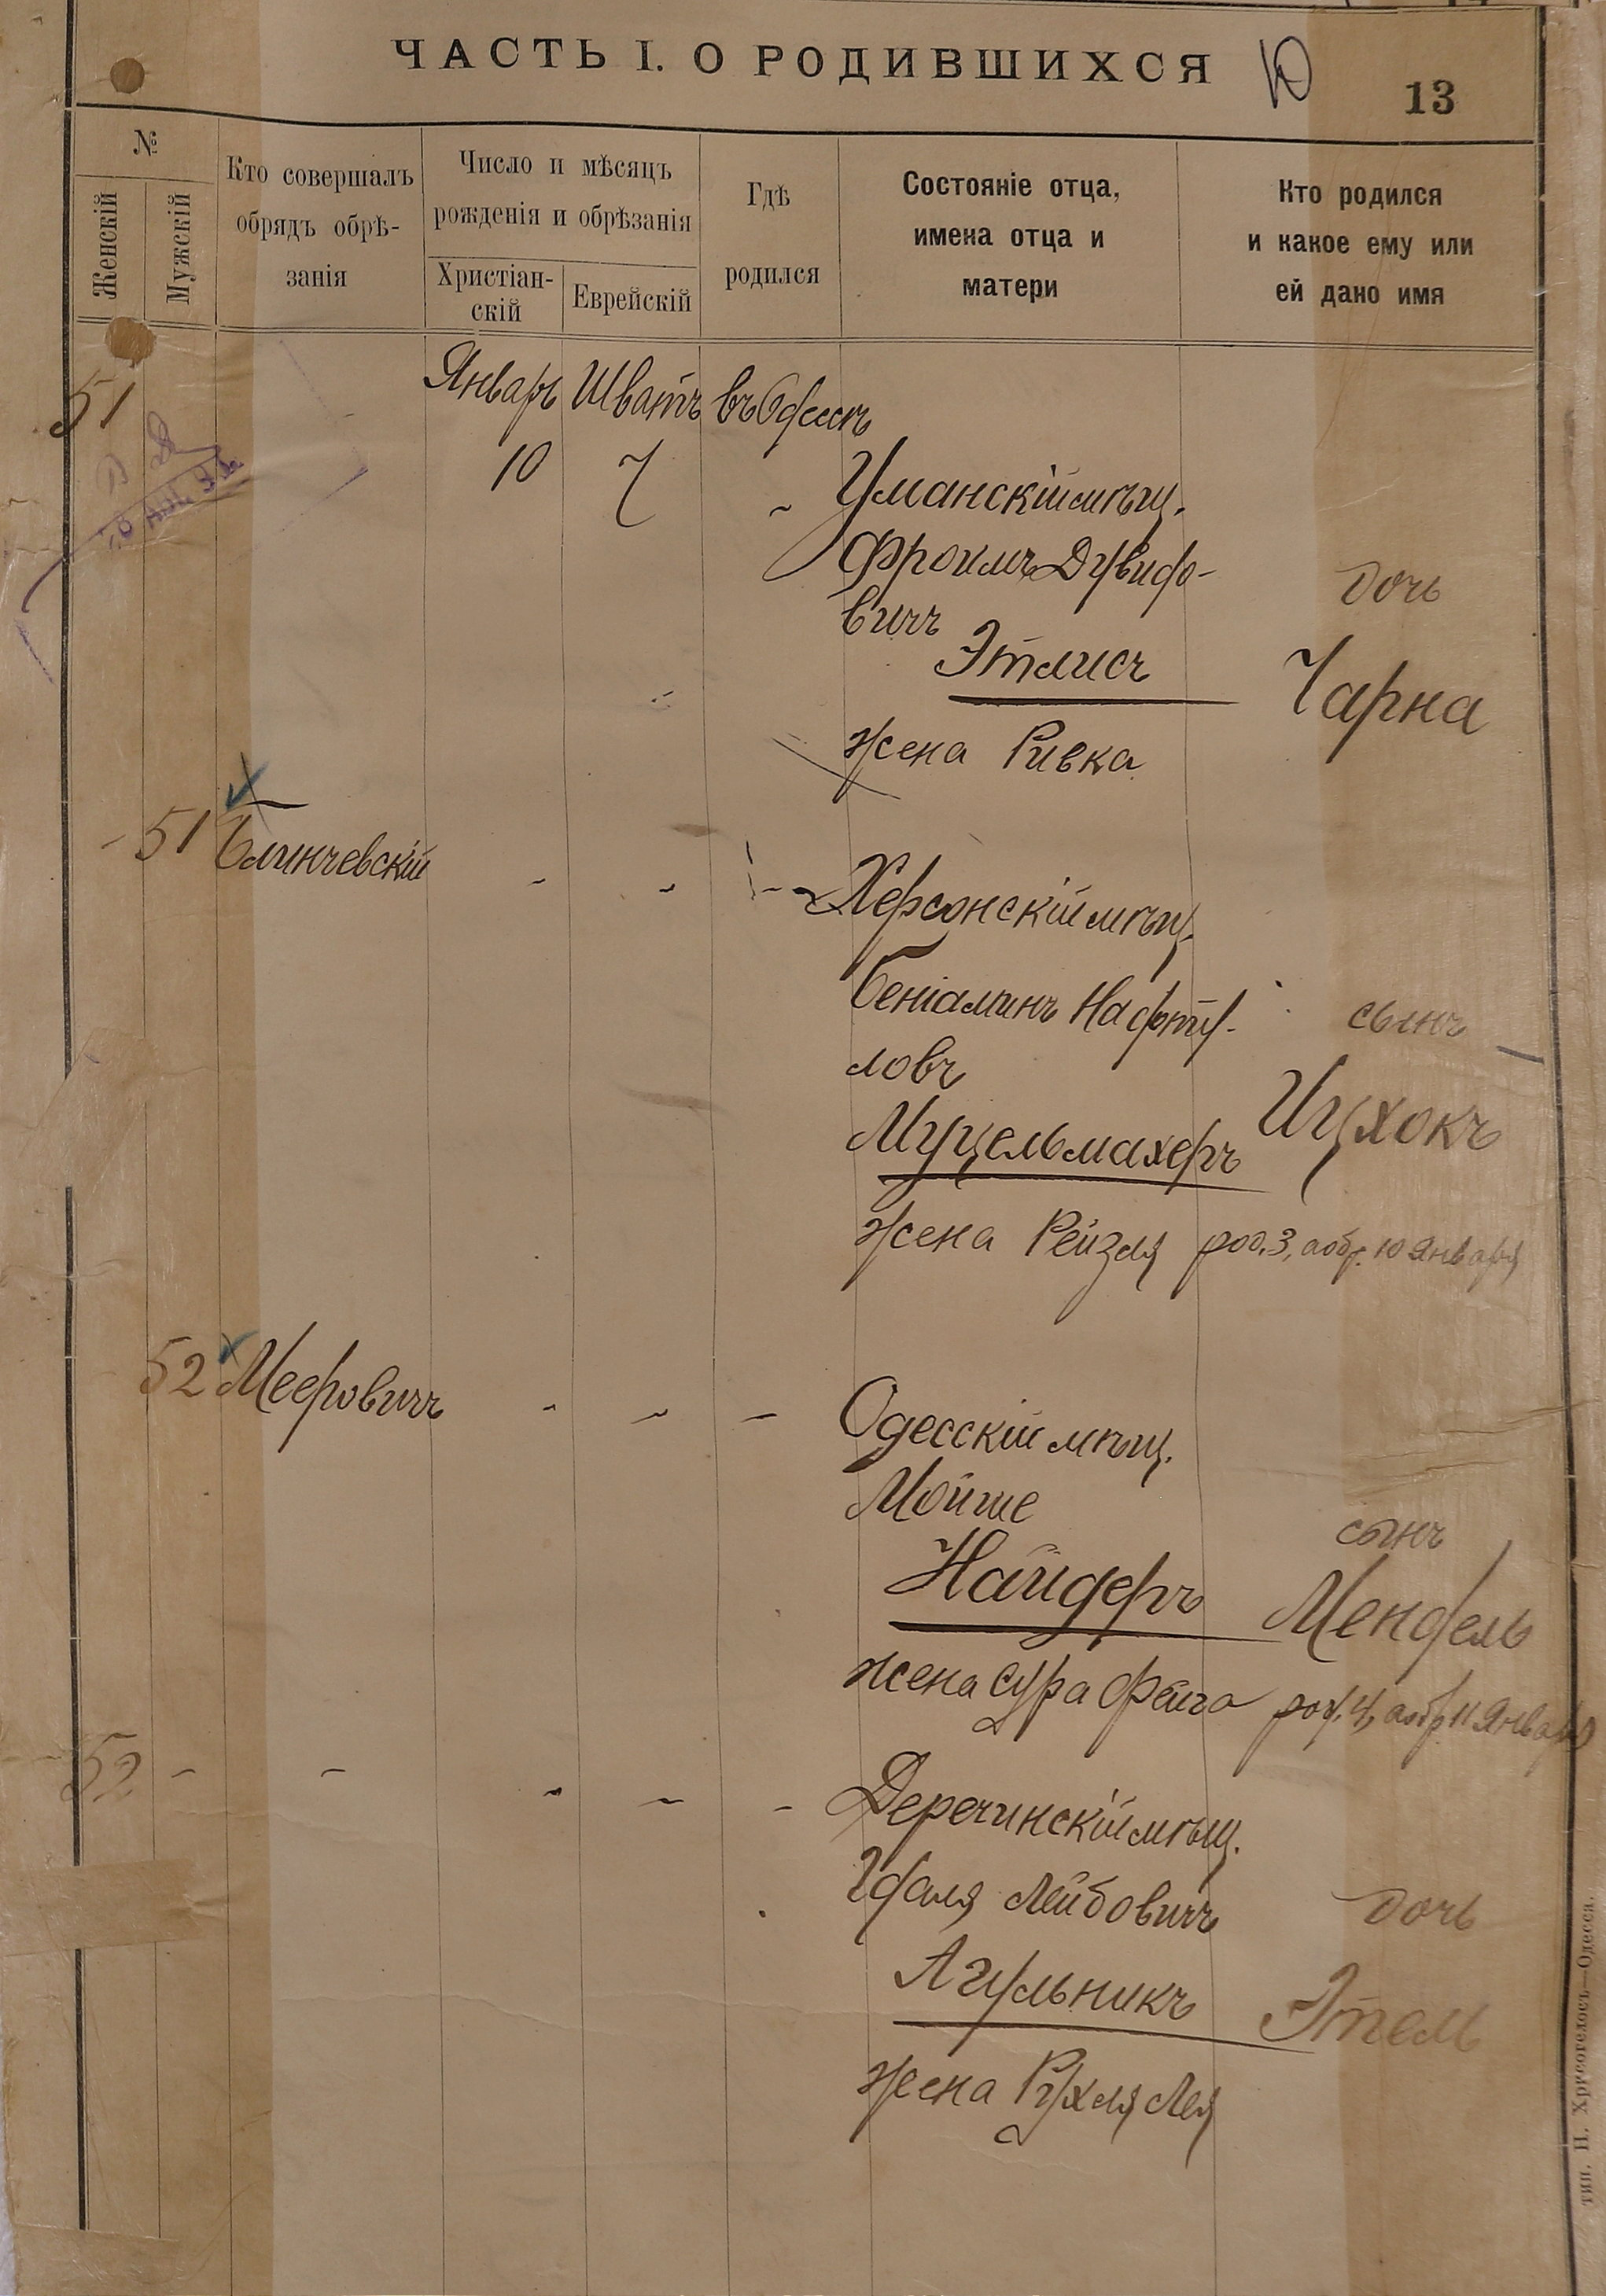 ЧАСТЬ I. О РОДИВШИХСЯ
13
№
Женскій
Мужскій
Кто совершалъ
обрядъ обрѣ-
занія
Число и мѣсяцъ
рожденія и обрѣзанія
Христіан-
скій
Еврейскій
Гдѣ
родился
Состояніе отца,
имена отца и
матери
Кто родился
и какое ему или
ей дано имя
51
Январь Шватъ въ Одессѣ
10 7 Уманскій мѣщ.
Фроимъ Дувидо-
вичъ
Этлисъ
жена Ривка
дочь
Чарна
51 Блинчевскій
Херсонскій мѣщ.
Беніаминъ Нафту-
ловъ
Муцельмахеръ
жена Рейзля
сынъ
Ицхокъ
род. 3, а обр. 10 Января
52 Мееровичъ
Одесскій мѣщ.
Мойше
Найдеръ
жена Сура Фейга
сынъ
Мендель
род. 4, а обр. 11 Января
52 - -
Деречинскій мѣщ.
Удаля Лейбовичъ
Агульникъ
жена Рухля Лея
дочь
Этель
тип. Н. Хрисогелосъ—Одесса.